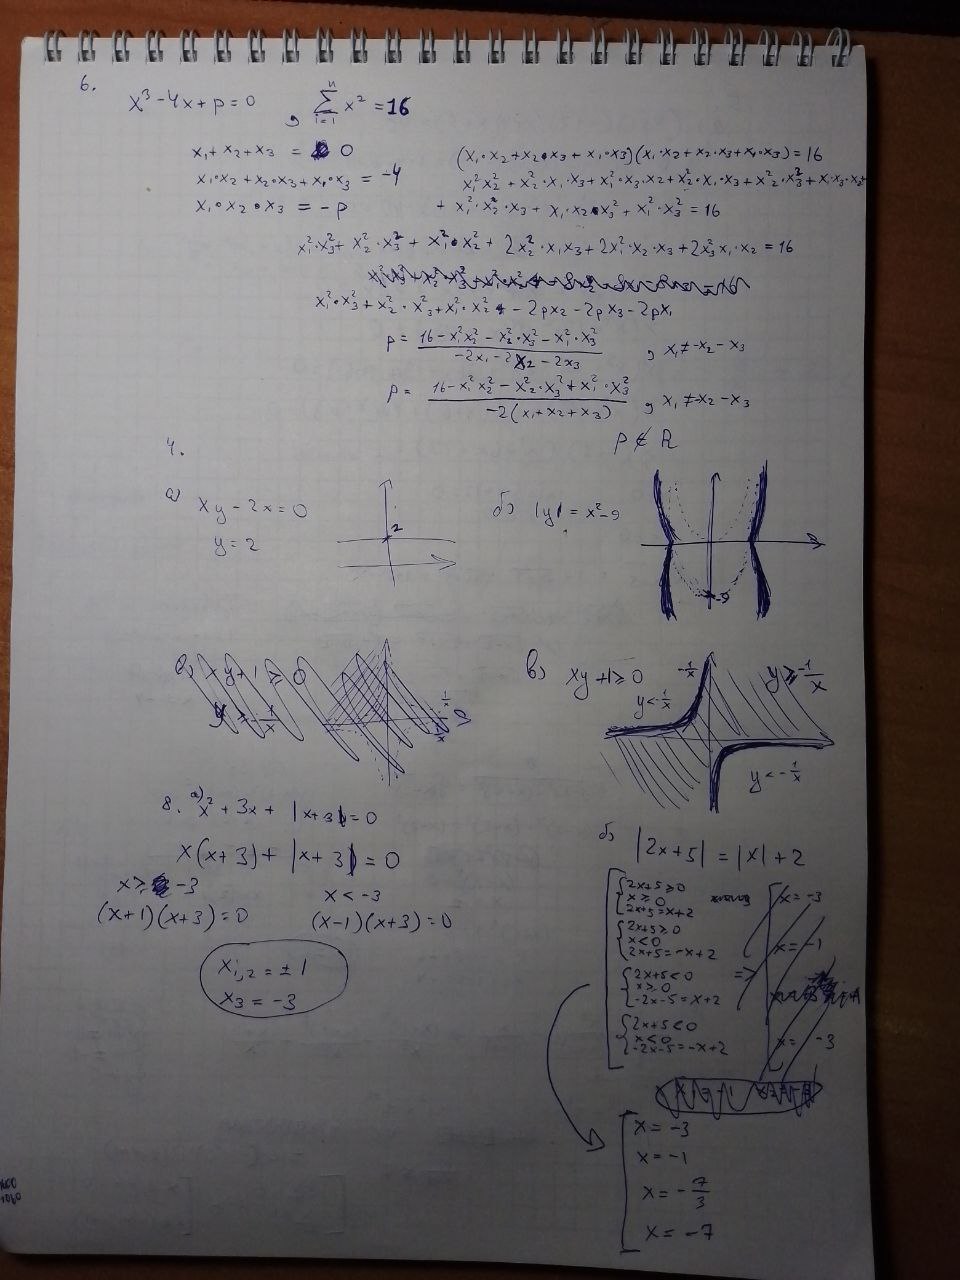 6.
x³ - 4x + p = 0 , ∑ⁿᵢ₌₁ x² = 16
x₁ + x₂ + x₃ = 0
x₁·x₂ + x₂·x₃ + x₁·x₃ = -4
x₁·x₂·x₃ = -p
(x₁·x₂ + x₂·x₃ + x₁·x₃)(x₁·x₂ + x₂·x₃ + x₁·x₃) = 16
x₁²x₂² + x₂²·x₁·x₃ + x₁²·x₃·x₂ + x₂²·x₁·x₃ + x₂²·x₃² +
+ x₁²·x₂·x₃ + x₁·x₂·x₃² + x₁²·x₃² = 16
x₁²·x₃² + x₂²·x₃² + x₁²·x₂² + 2x₂²·x₁x₃ + 2x₁²·x₂·x₃ + 2x₃²x₁·x₂ = 16
x₁²·x₃² + x₂²·x₃² + x₁²·x₂² - 2px₂ - 2px₃ - 2px₁
p = (16 - x₁²x₂² - x₂²·x₃² - x₁²·x₃²)/(-2x₁ - 2x₂ - 2x₃) , x₁ ≠ -x₂ - x₃
p = (16 - x₁²x₂² - x₂²·x₃² + x₁²·x₃²)/(-2(x₁ + x₂ + x₃)) , x₁ ≠ -x₂ - x₃
p ∉ R
4.
а) xy - 2x = 0
y = 2
2
б) |y| = x² - 9
-9
xy + 1 ≥ 0
y ≥ -1/x
в) xy + 1 ≥ 0
-1/x
y < -1/x
y ≥ -1/x
y < -1/x
8. а) x² + 3x + |x + 3| = 0
x(x + 3) + |x + 3| = 0
x ≥ -3
(x + 1)(x + 3) = 0
x < -3
(x - 1)(x + 3) = 0
x₁,₂ = ± 1
x₃ = -3
б) |2x + 5| = |x| + 2
2x + 5 ≥ 0
x ≥ 0
2x + 5 = x + 2
2x + 5 ≥ 0
x < 0
2x + 5 = -x + 2
2x + 5 < 0
x ≥ 0
-2x - 5 = x + 2
2x + 5 < 0
x < 0
-2x - 5 = -x + 2
=>
x = -3
x = -1
x = -3
x = -3
x = -1
x = -7/3
x = -7